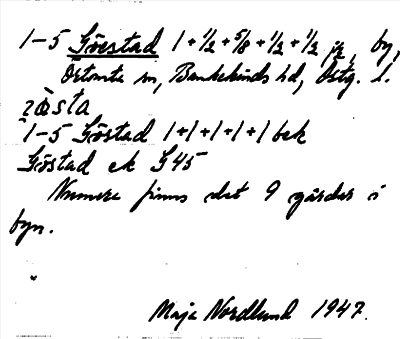 1-5 Görstad 1+1/2+5/8+1/2+1/2 jz, by,
Örtomta sn, Bankekinds hd, Östg. l.
1-5 Göstad 1+1+1+1+1 bek
Göstad ek G45
Numera finns det 9 gårdar i
byn.
Maja Nordlund 1947.